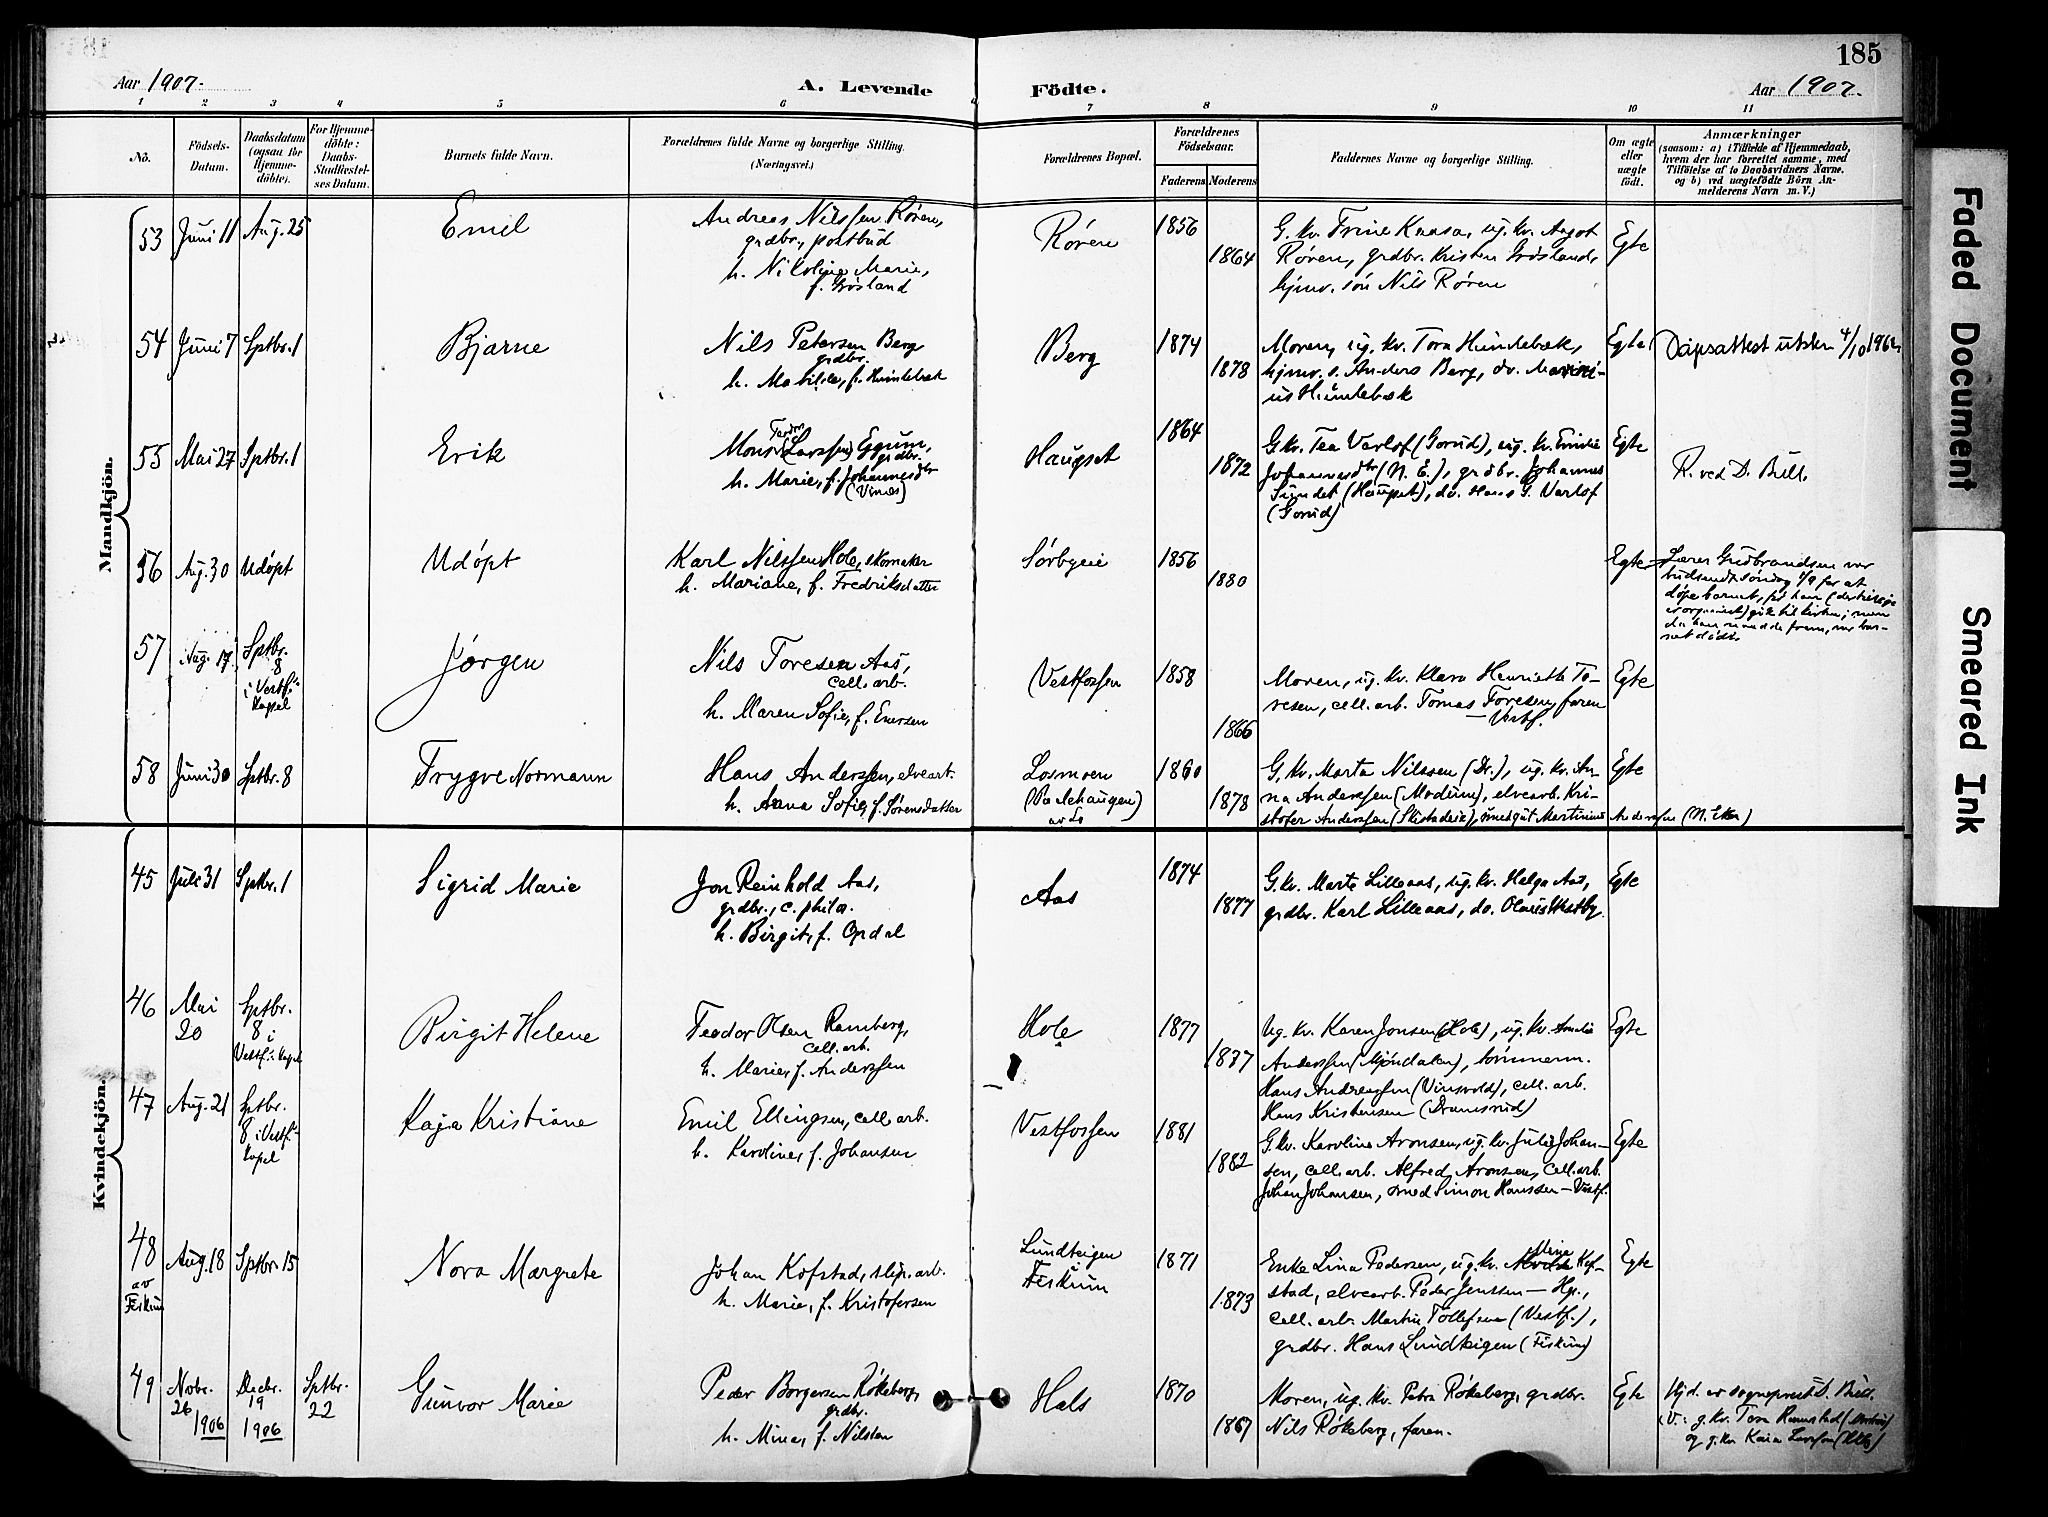 185
Aar 1907.
A. Levende Födte.
Aar 1907.
1 2 3 4 5 6 7 8 9 10 11
No.
Födsels-Datum.
Daabsdatum (ogsaa for Hjemme-döbte).
For Hjemme-döbte: Daabs-Stadfæstel-ses Datum.
Barnets fulde Navn.
Forældrenes fulde Navne og borgerlige Stilling. (Næringsvei.)
Forældrenes Bopæl.
Forældrenes Födselsaar.
Faderens Moderens
Faddernes Navne og borgerlige Stilling.
Om ægte eller uægte födt.
Anmærkninger
(saasom: a) i Tilfælde af Hjemmedaab,
hvem der har forrettet samme, med
Tilföielse af to Daabsvidners Navne.
og b) ved uægtefödte Börn An-
melderens Navn m. V.)
Mandkjön.
53 Juni 11 Aug. 25 Emil
Andreas Nilssen Røren,
grdbr., postbud
h. Nikoline Marie,
f. Grøsland
Røren 1856 1864
G. kv. Trine Kaasa, ug. kv. Aagot
Røren, grdbr. Kristen Grøsland,
hjmv. søn Nils Røren
Egte
54 Juni 7 Sptbr. 1 Bjarne
Nils Petersen Berg
grdbr.
h. Matilde, f. Hundebæk
Berg 1874 1878
Moren, ug. kv. Tora Hundebæk,
hjmv. s. Anders Berg, do. Marini-
us Hundebæk
Egte
Dåpsattest utsten 4/10 1962
55 Mai 27 Sptbr. 1 Erik
Teodor
Mons (Larssen) Eggum,
grdbr.
h. Marie, f. Johannesdtr
(Vinæs)
Haugset 1864 1872
G. kv. Tea Varlof (Gorud), ug. kv. Emilie
Johannesdtr (N. E.), grdbr. Johannes
Sundet (Haugset), do. Hans G. Varlof
(Gorud)
Egte
R. ved D. Bull.
56 Aug. 30 Udöpt Udöpt
Karl Nilssen Hole, skomaker
h. Mariane, f. Fredriksdatter
Sørbyeie 1856 1880
Egte
Lærer Gudbrandsen var
budsendt søndag 1/9 for at
døpe barnet, før han
gik til kirken; men
da han naadde frem, var bar-
net dødt.
57 Aug. 17 Sptbr. 8 i Vestf.: Kapel Jørgen
Nils Toresen Aas,
cell. arb.
h. Maren Sofie, f. Enersen
Vestfossen 1858 1866
Moren, ug. kv. Klara Henriette To-
resen, cell. arb. Tomas Toresen, faren
— Vestf.
Egte
58 Juni 30 Sptbr. 8 Trygve Normann
Hans Anderssen, elvearb.
h. Anna Sofie, f. Sørensdatter
Losmoen
av Lo
1860 1878
G. kv. Marta Nilssen (Dr.), ug. kv. An-
na Anderssen (Modum), elvearb. Kri-
stofer Anderssen, smedgut Martinius Anderssen (N. Eker)
Egte
Kvindekjön.
45 Juli 31 Sptbr. 1 Sigrid Marie
Jon Reinhold Aas,
grdbr., c. philo.
h. Birgit, f. Opdal
Aas 1874 1877
G. kv. Marte Lilleaas, ug. kv. Helga Aas,
grdbr. Karl Lilleaas, do. Olaus Westby.
Egte
46 Mai 20 Sptbr. 8 i Vestf.: Kapel Birgit Helene
Teodor Olsen Ramberg,
cell. arb.
h. Marie, f. Anderssen
Hole 1877 1877
Ug. kv. Karen Jonsen (Hole), ug. kv. Amalie
Anderssen (Mjöndalen), tømmerm.
Hans Andreassen (Vinsvold), cell. arb.
Hans Kristensen (Dramsrud)
Egte
47 Aug. 21 Sptbr. 8 i Vestf.: Kapel Kaja Kristiane
Emil Ellingsen, cell. arb.
h. Karoline, f. Johansen
Vestfossen 1881 1882
G. kv. Karoline Aronsen, ug. kv. Julie Johan-
sen, cell. arb. Alfred Aronsen, cell. arb.
Johan Johansen, smed Simon Hanssen — Vestf.
Egte
48 av Fiskum Aug. 18 Sptbr. 15 Nora Margrete
Johan Kofstad, slip. arb.
h. Marie, f. Kristofersen
Lundteigen
Fiskum
1871 1873
Enke Lina Pedersen, ug. kv. Mina Kof-
stad, elvearb. Peder Jenssen — Hp.,
cell. arb. Martin Tollefsen (Vestf.),
grdbr. Hans Lundteigen (Fiskum)
Egte
49 Novbr. 26 1906 Decbr. 19 1906 Sptbr. 22 Gunvor Marie
Peder Borgersen Røkeberg,
grdbr.
h. Mina, f. Nilsen
Hals 1870 1867
Moren, ug. kv. Petra Røkeberg, grdbr.
Nils Røkeberg, faren.
Egte
Hjd. av sogneprest D. Bull.
V.: g. kv. Tora Ramstad
og g. kv. Kaia Larsson (Hals)
Faded Document
Smeared Ink